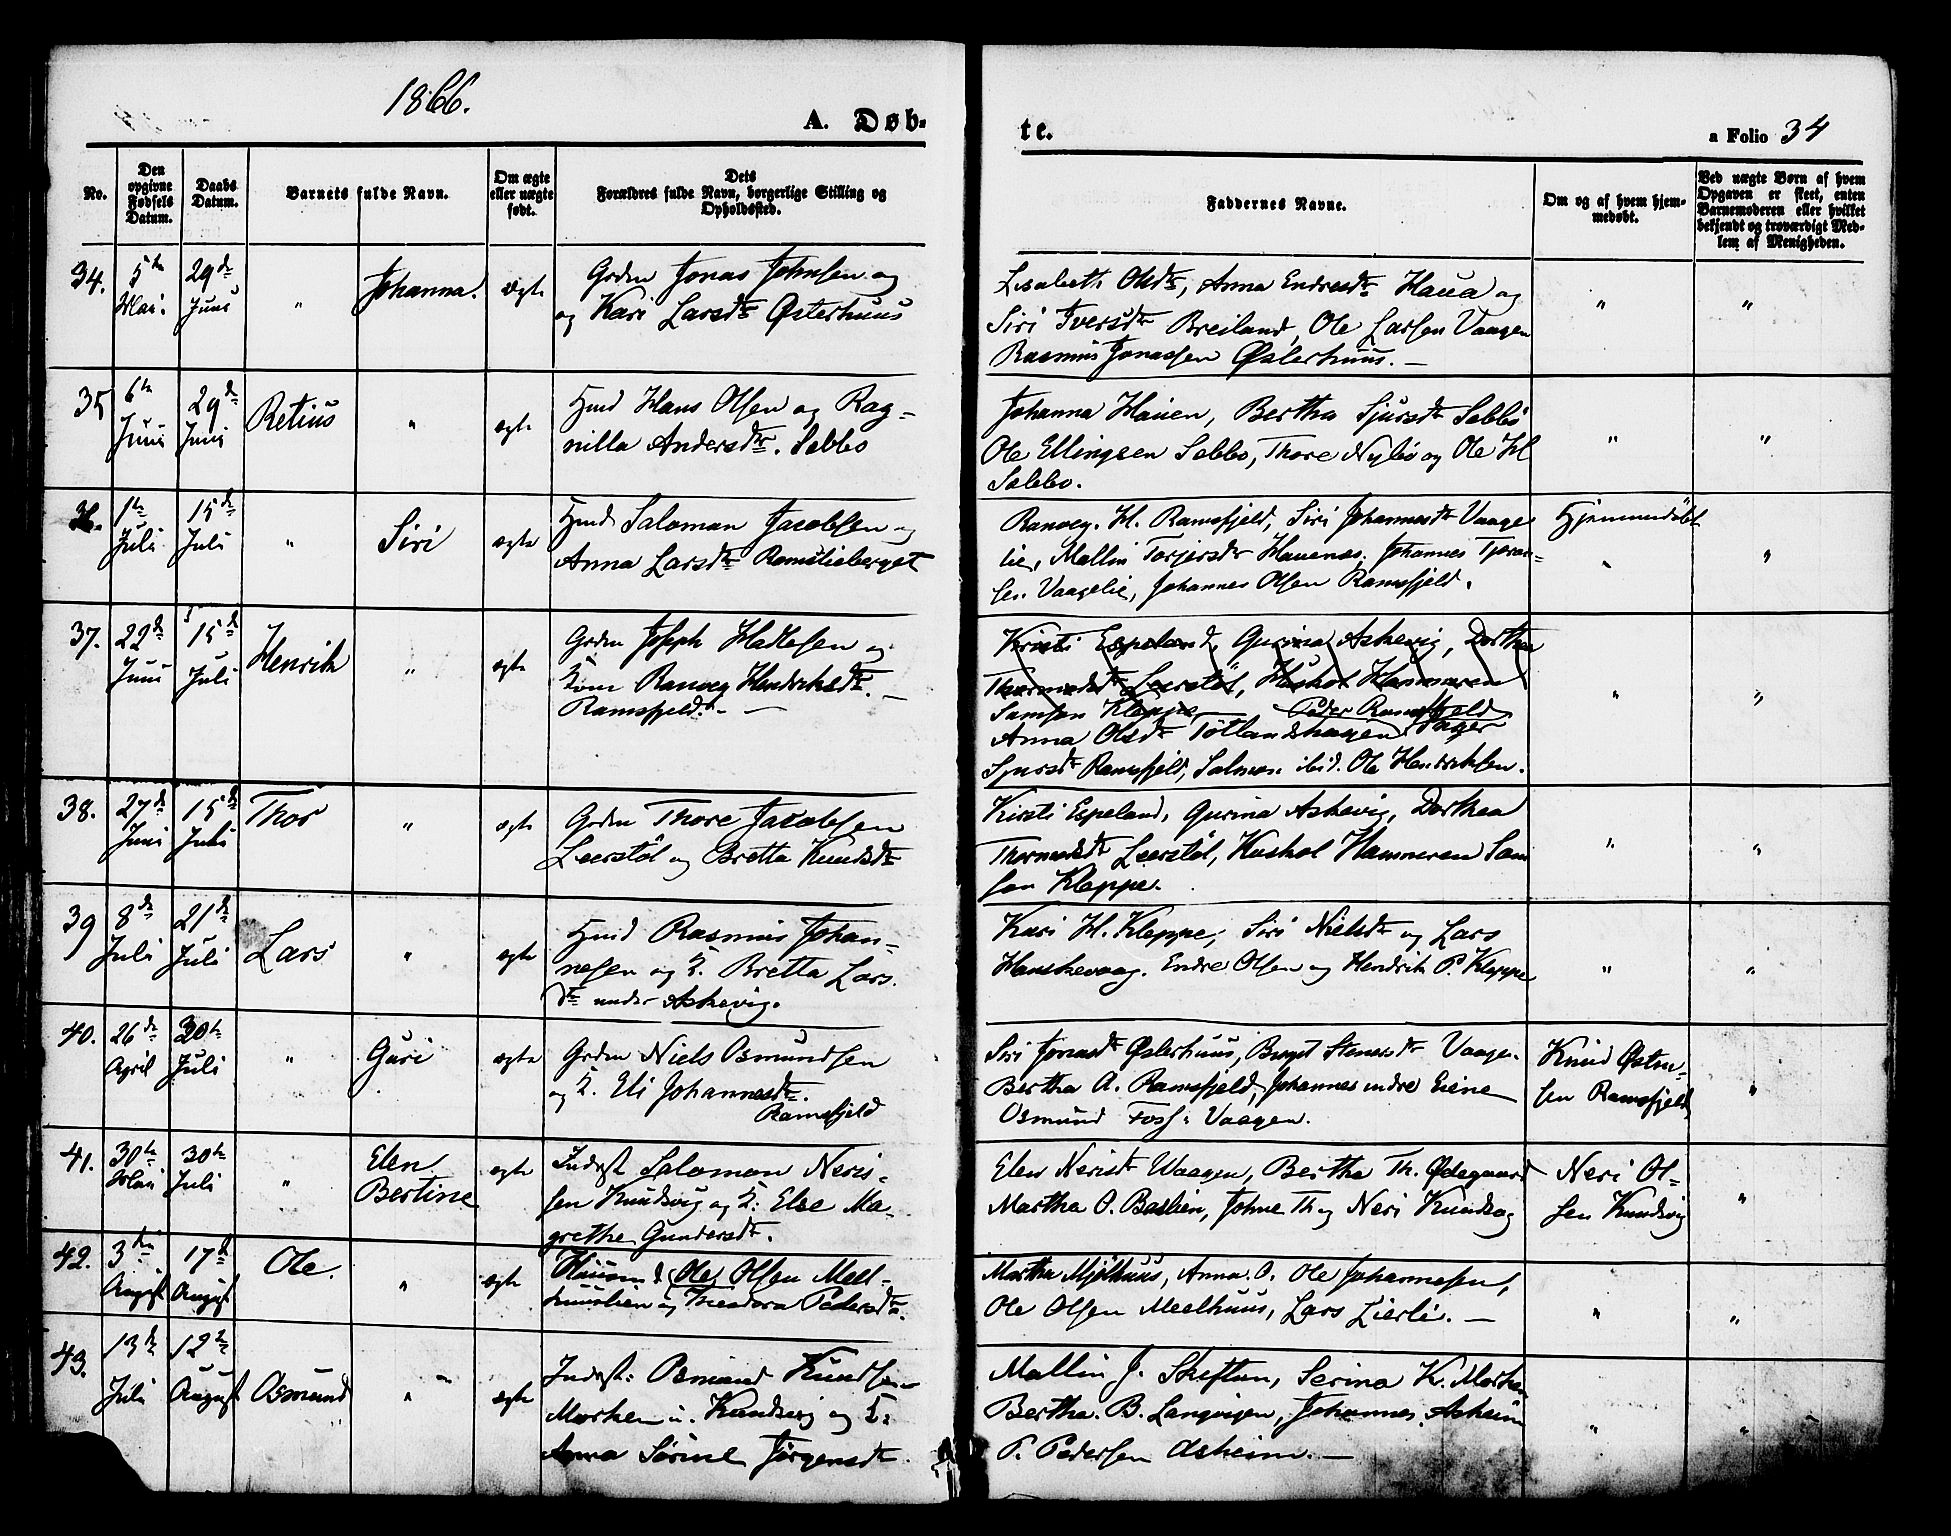 1866.
A. Døb-
te.
a Folio 34
No.
Den opgivne Fødsels Datum.
Daabs Datum.
Barnets fulde Navn.
Om ægte eller uægte født.
Dets
Forældres fulde Navn, borgerlige Stilling og
Opholdssted.
Faddernes Navne.
Om og af hvem hjem-
medøbt.
Ved uægte Børn af hvem
Opgaven er skeet, enten
Barnemoderen eller hvilket
bekjendt og troværdigt Med-
lem af Menigheden.
34. 5te Mai. 29de Juni " Johanna. ægte
Grdm Jonas Johnsen og
og Kari Larsdtr Østerhuus
Lisabeth Olsdtr, Anna Endresdtr Haua og
Siri Iversdtr Breiland, Ole Larsen Vaagen
Rasmus Jonassen Østerhuus. —
" "
35 6te Juni 29de Juni Retius " ægte
Hmd Hans Olsen og Rag-
nilla Andersdtr. Sebbø
Johanna Hauen, Bertha Sjursdtr Sebbö
Ole Ellingsen Sebbø, Thore Nybø og Ole H
Sebbo.
" "
36. 1te Juli 15de Juli " Siri ægte
Hmd Saloman Jacobsen og
Anna Larsdtr Ramslieberget
Ranveg. H. Ramsfjeld, Siri Johannesdtr Vaage
lie, Mallin Torjersdtr Hauenæs, Johannes
sen Vaagelie, Johannes Olsen Ramsfjeld.
Hjemmedöbt
" "
37. 22de Juni 15de Juli Henrik " ægte
Grdm Joseph Hadlesen og
Kone Ranveg Hendriksdtr. —
Ramsfjeld. —
Kirsti Espeland, Gurina Askevig, Dorthea
Thormodsdtr Leerstöl, Huskol Hammeren
Samsen Kleppe — Peder Ramsfjeld
Anna Olsdtr Tøtlandshagen,
Sjursdtr Ramsfjeld, Salmon ibid. Ole Hendriksen.
" "
38. 27de Juni 15de Juli Thor " ægte
Grdm Thore Jacobsen
Leerstöl og Bretta Knudsdtr
Kirsti Espeland, Gurina Askevig, Dorthea
Thormodsdtr Leerstöl, Huskol Hammeren Sam
son Kleppe.
" "
39 8de Juli 21de Juli Lars " ægte
Hmd Rasmus Johan-
nesen og K. Bretta Lars.
dtr under Askevig.
Kari H. Kleppe, Siri Nielsdtr og Lars
Hanskevaag. Endre Olsen og Hendrik P. Kleppe
" "
40. 26de April 30te Juli " Guri ægte
Grdm Niels Osmundsen
og K. Eli Johannesdtr.
Ramsfjeld
Siri Jonasdtr Østerhuus, Birget Stenersdtr Vaage.
Bertha A. Ramsfjeld, Johannes indre Eiene
Osmund Foss: Vaagen.
Knud Østen-
sen Ramsfjeld
"
41. 30te Mai 30te Juli " Elen Bertine ægte
Inderst Saloman Neris-
sen Knudsvig og K: Else Ma-
grethe Gundersdtr.
Elen Nerisdtr Waagen, Bertha Th. Ødegaard
Martha O. Baslien, Johne Th og Neri Knudsvg
Neri Ol-
sen Knudsvig
"
42. 3die August 17de August Ole. " ægte
Huusmd Ole Olsen Meel-
huuslien og Theodora Pedersdtr.
Martha Mjølhuus, Anna. O. Ole Johannesen,
Ole Olsen Meelhuus, Lars Lierli. —
" "
43. 13de Juli 12te August Osmund " ægte
Inderst: Osmund Knudsen
Morken u. Knudsvig og K:
Anna Sørine Jørgensdtr.
Mallin J. Skeftun, Serina K. Morken
Bertha. B. Langvigen, Johannes Asheim
P. Pedersen Asheim. —
" "